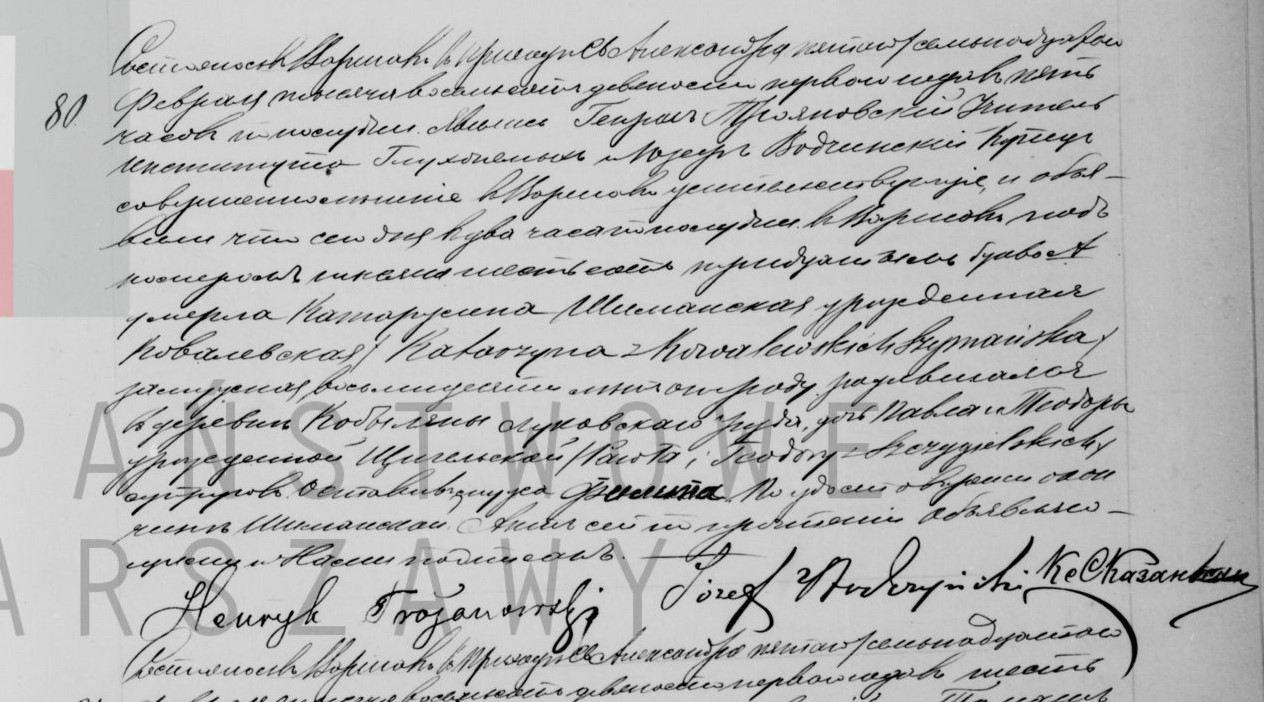 80.
Состоялось в Варшаве в приходе Св Александра пятаго /семьнадцатаго/
Февраля тысяча восемьсотъ девяносто перваго года въ пять
часовъ по полудни. Явились Генрихъ Трояновскій Учитель
Института Глухонемыхъ и Іозефъ Водчинскій Купецъ
совершеннолетніе в Варшаве жительствующіе, и объя-
вили что сего дня в два часа по полудни в Варшаве подъ
номеромъ тысяча шестьсотъ тридцатымъ буква А
умерла Катаржина Шиманская урожденная
Ковалевская /Katarzyna z Kowalewskich Szymańska/
замужняя, восьмидесяти летъ отъ роду родившаяся
в деревне Кобыляны Луковскаго уезда, дочь Павла и Теодоры
урожденной Щигельской /Pawła i Teodory z Szczygielskich/
супруговъ. Оставивъ мужа Филипа. По удостоверении о кон
чине Шиманской, Актъ сей по прочтеніи объявляю-
щими и Нами подписанъ.
Henryk Trojanowski Józef Wodczyński Кс Казан
Состоялось в Варшаве в приходе Св Александра пятаго /семьнадцатаго/
восемьсотъ девяносто перваго года въ шесть
PAŃSTWOWE
ARSZAWY